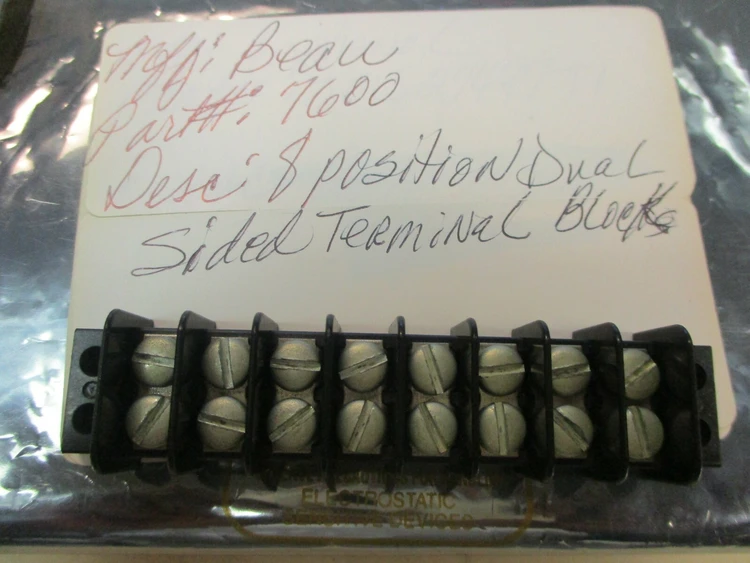 Mfg: Beau
Part#: 7600
Desc: 8 position Dual
Sided Terminal Blocks
ELECTROSTATIC
SENSITIVE DEVICES